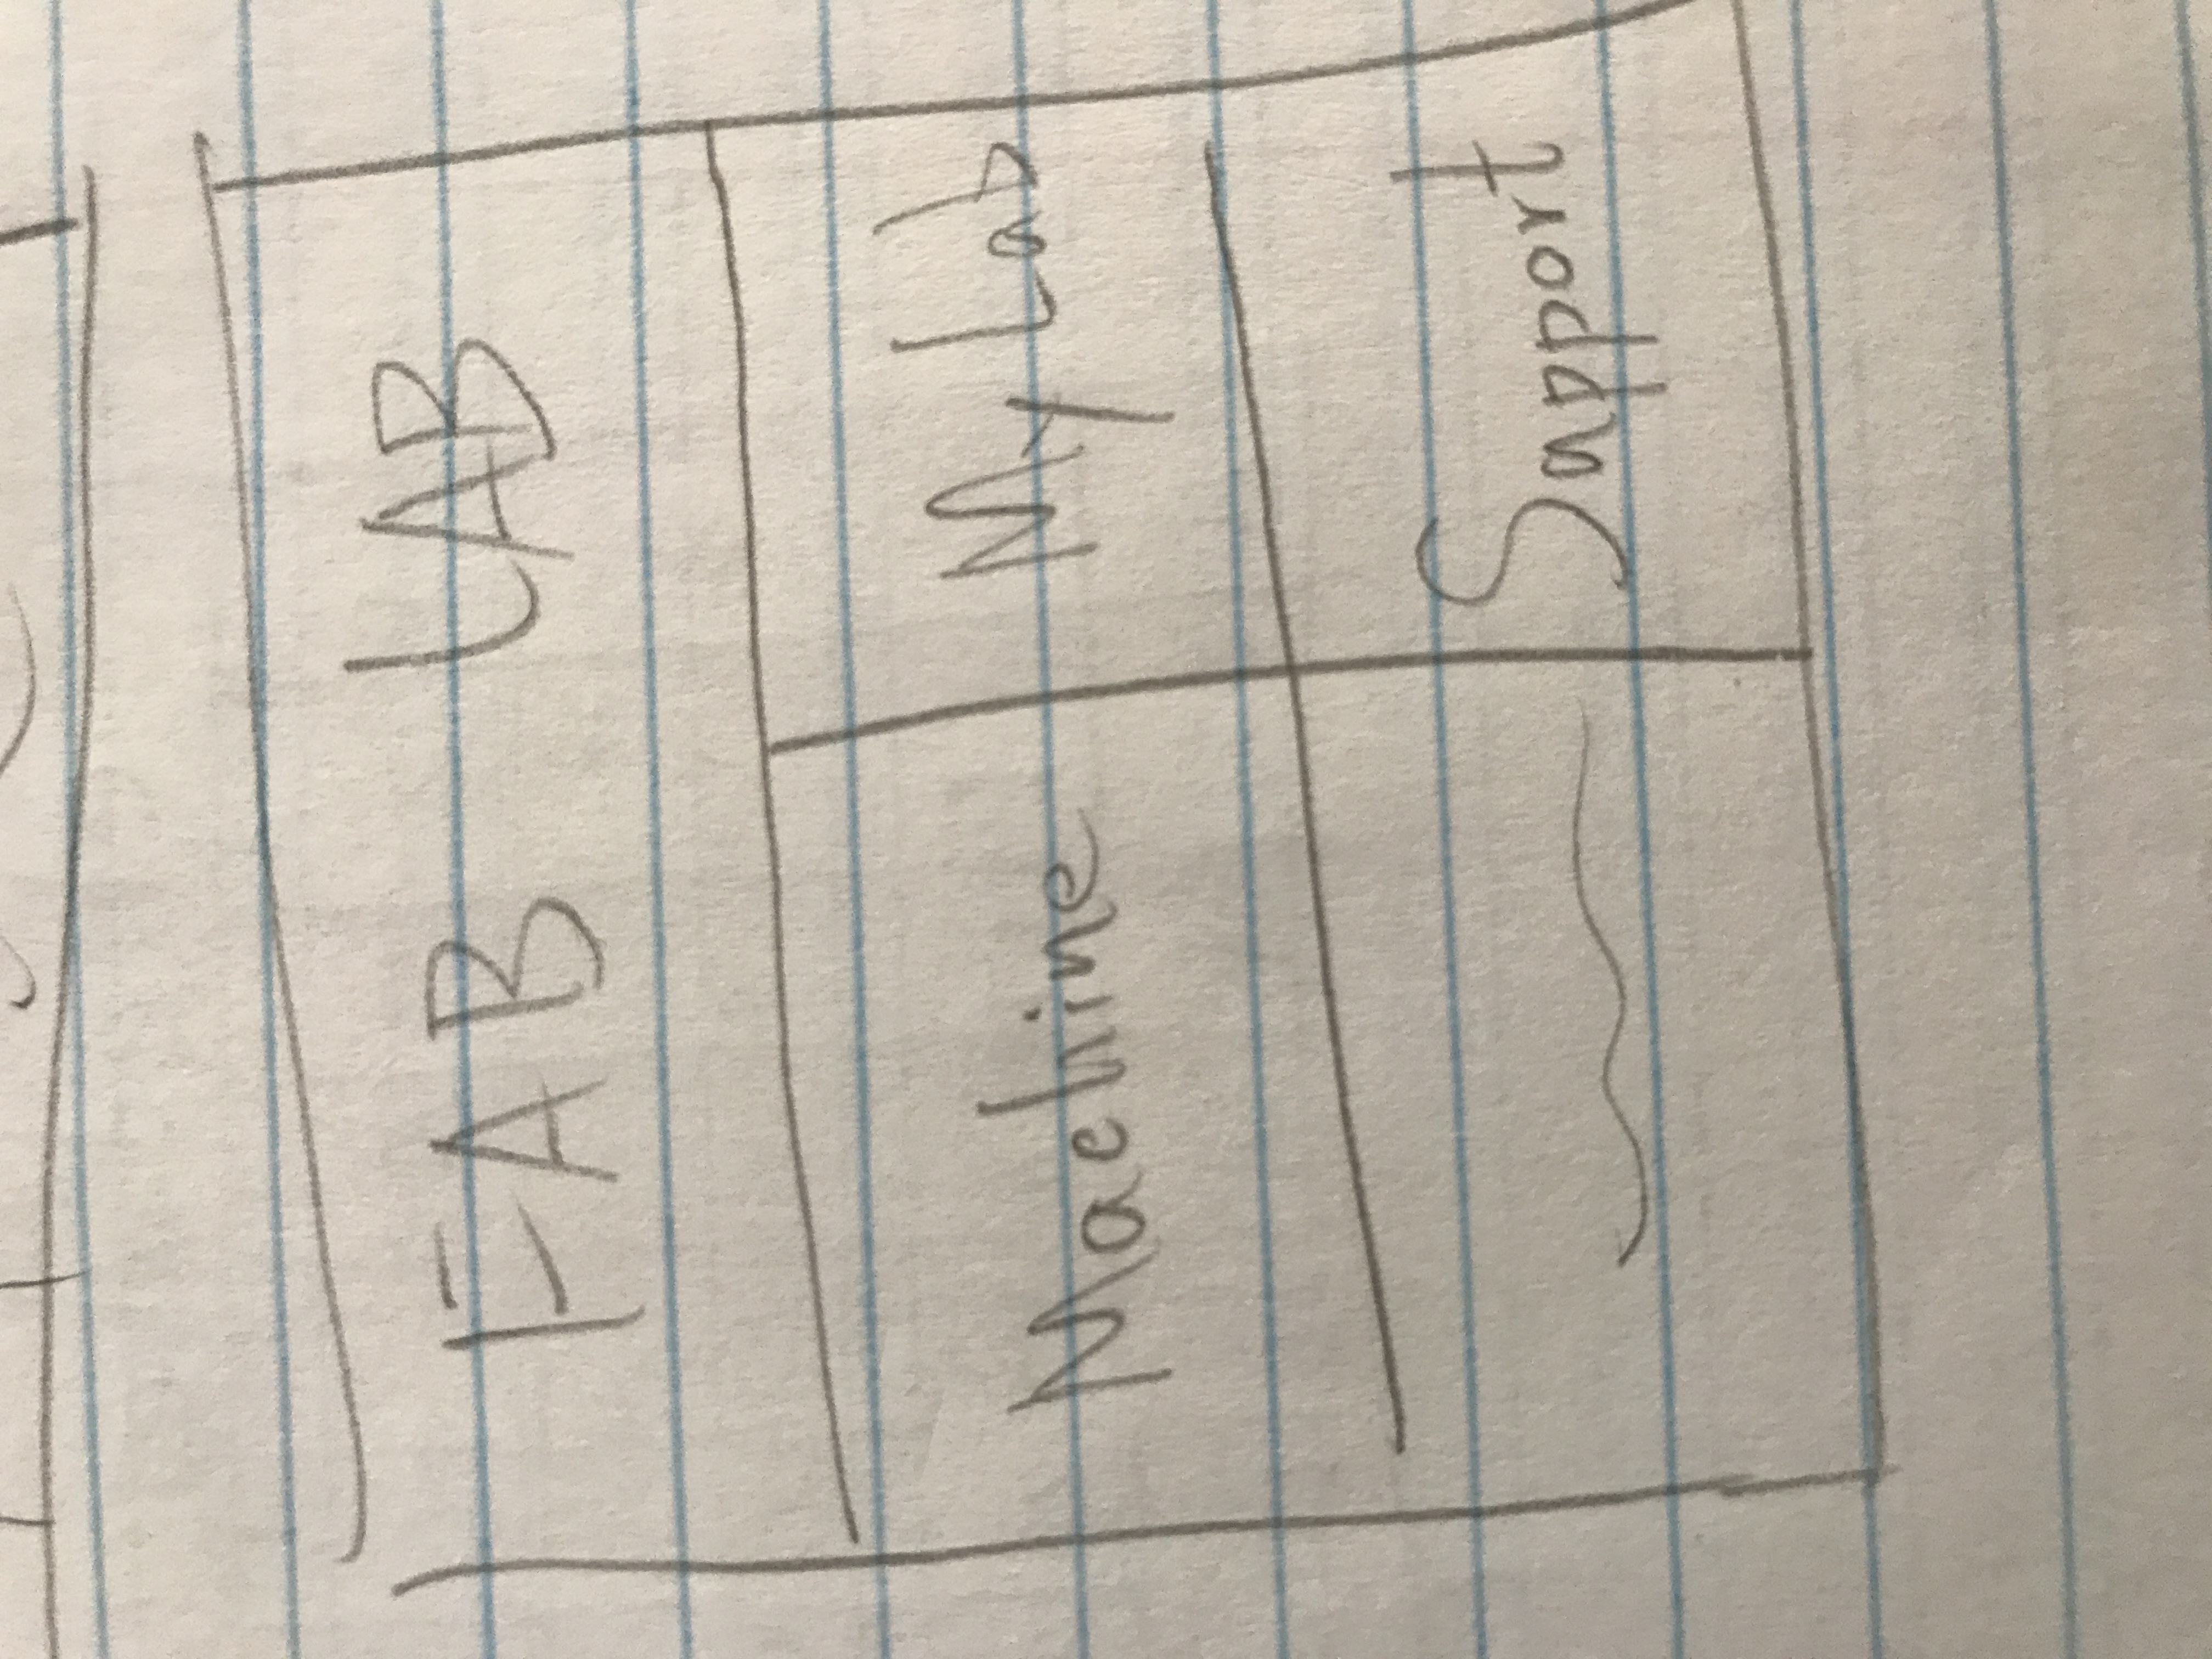 FAB LAB
Machine
My Lab
Support